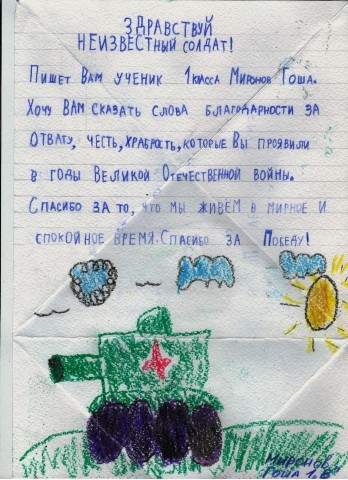 ЗДРАВСТВУЙ
НЕИЗВЕСТНЫЙ СОЛДАТ!
ПИШЕТ ВАМ УЧЕНИК 1КЛАССА МИРОНОВ ГОША.
ХОЧУ ВАМ СКАЗАТЬ СЛОВА БЛАГОДАРНОСТИ ЗА
ОТВАГУ, ЧЕСТЬ, ХРАБРОСТЬ, КОТОРЫЕ ВЫ ПРОЯВИЛИ
В ГОДЫ ВЕЛИКОЙ ОТЕЧЕСТВЕННОЙ ВОЙНЫ.
СПАСИБО ЗА ТО, ЧТО МЫ ЖИВЁМ В МИРНОЕ И
СПОКОЙНОЕ ВРЕМЯ. СПАСИБО ЗА ПОБЕДУ!
МИРОНОВ
ГОША 1"Б"